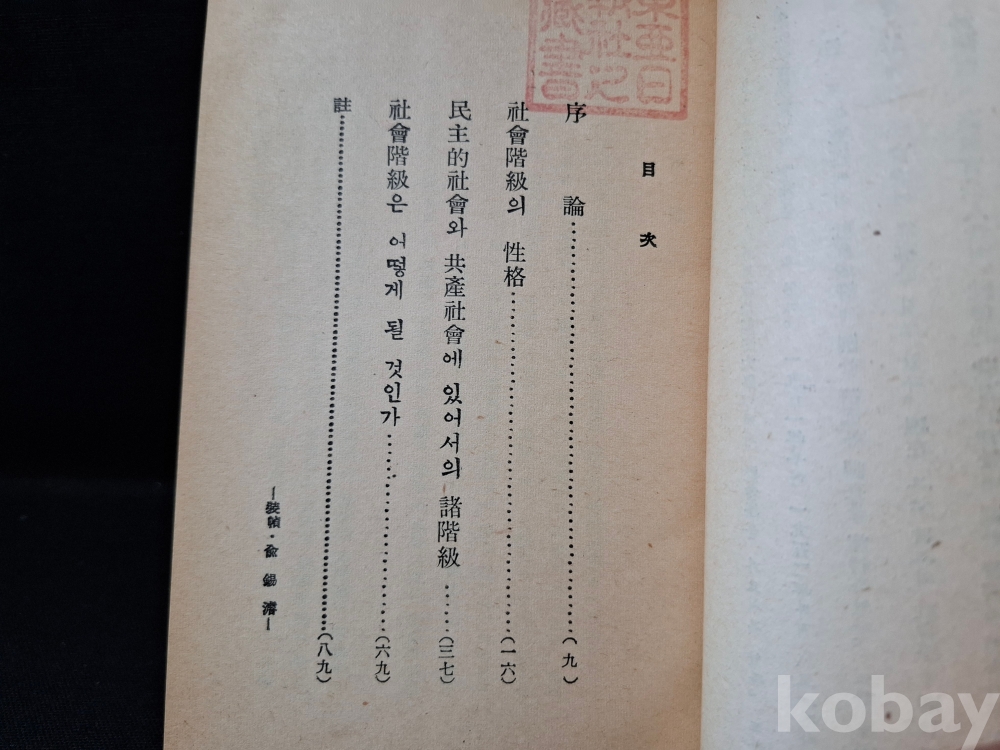 東亞日
報社之
藏書
目 次
序 論……(九)
社會階級의 性格……(一六)
民主的社會와 共產社會에 있어서의 諸階級……(三七)
社會階級은 어떻게 될 것인가……(六九)
註……(八九)
—裝幀・兪 錫 濬—
kobay